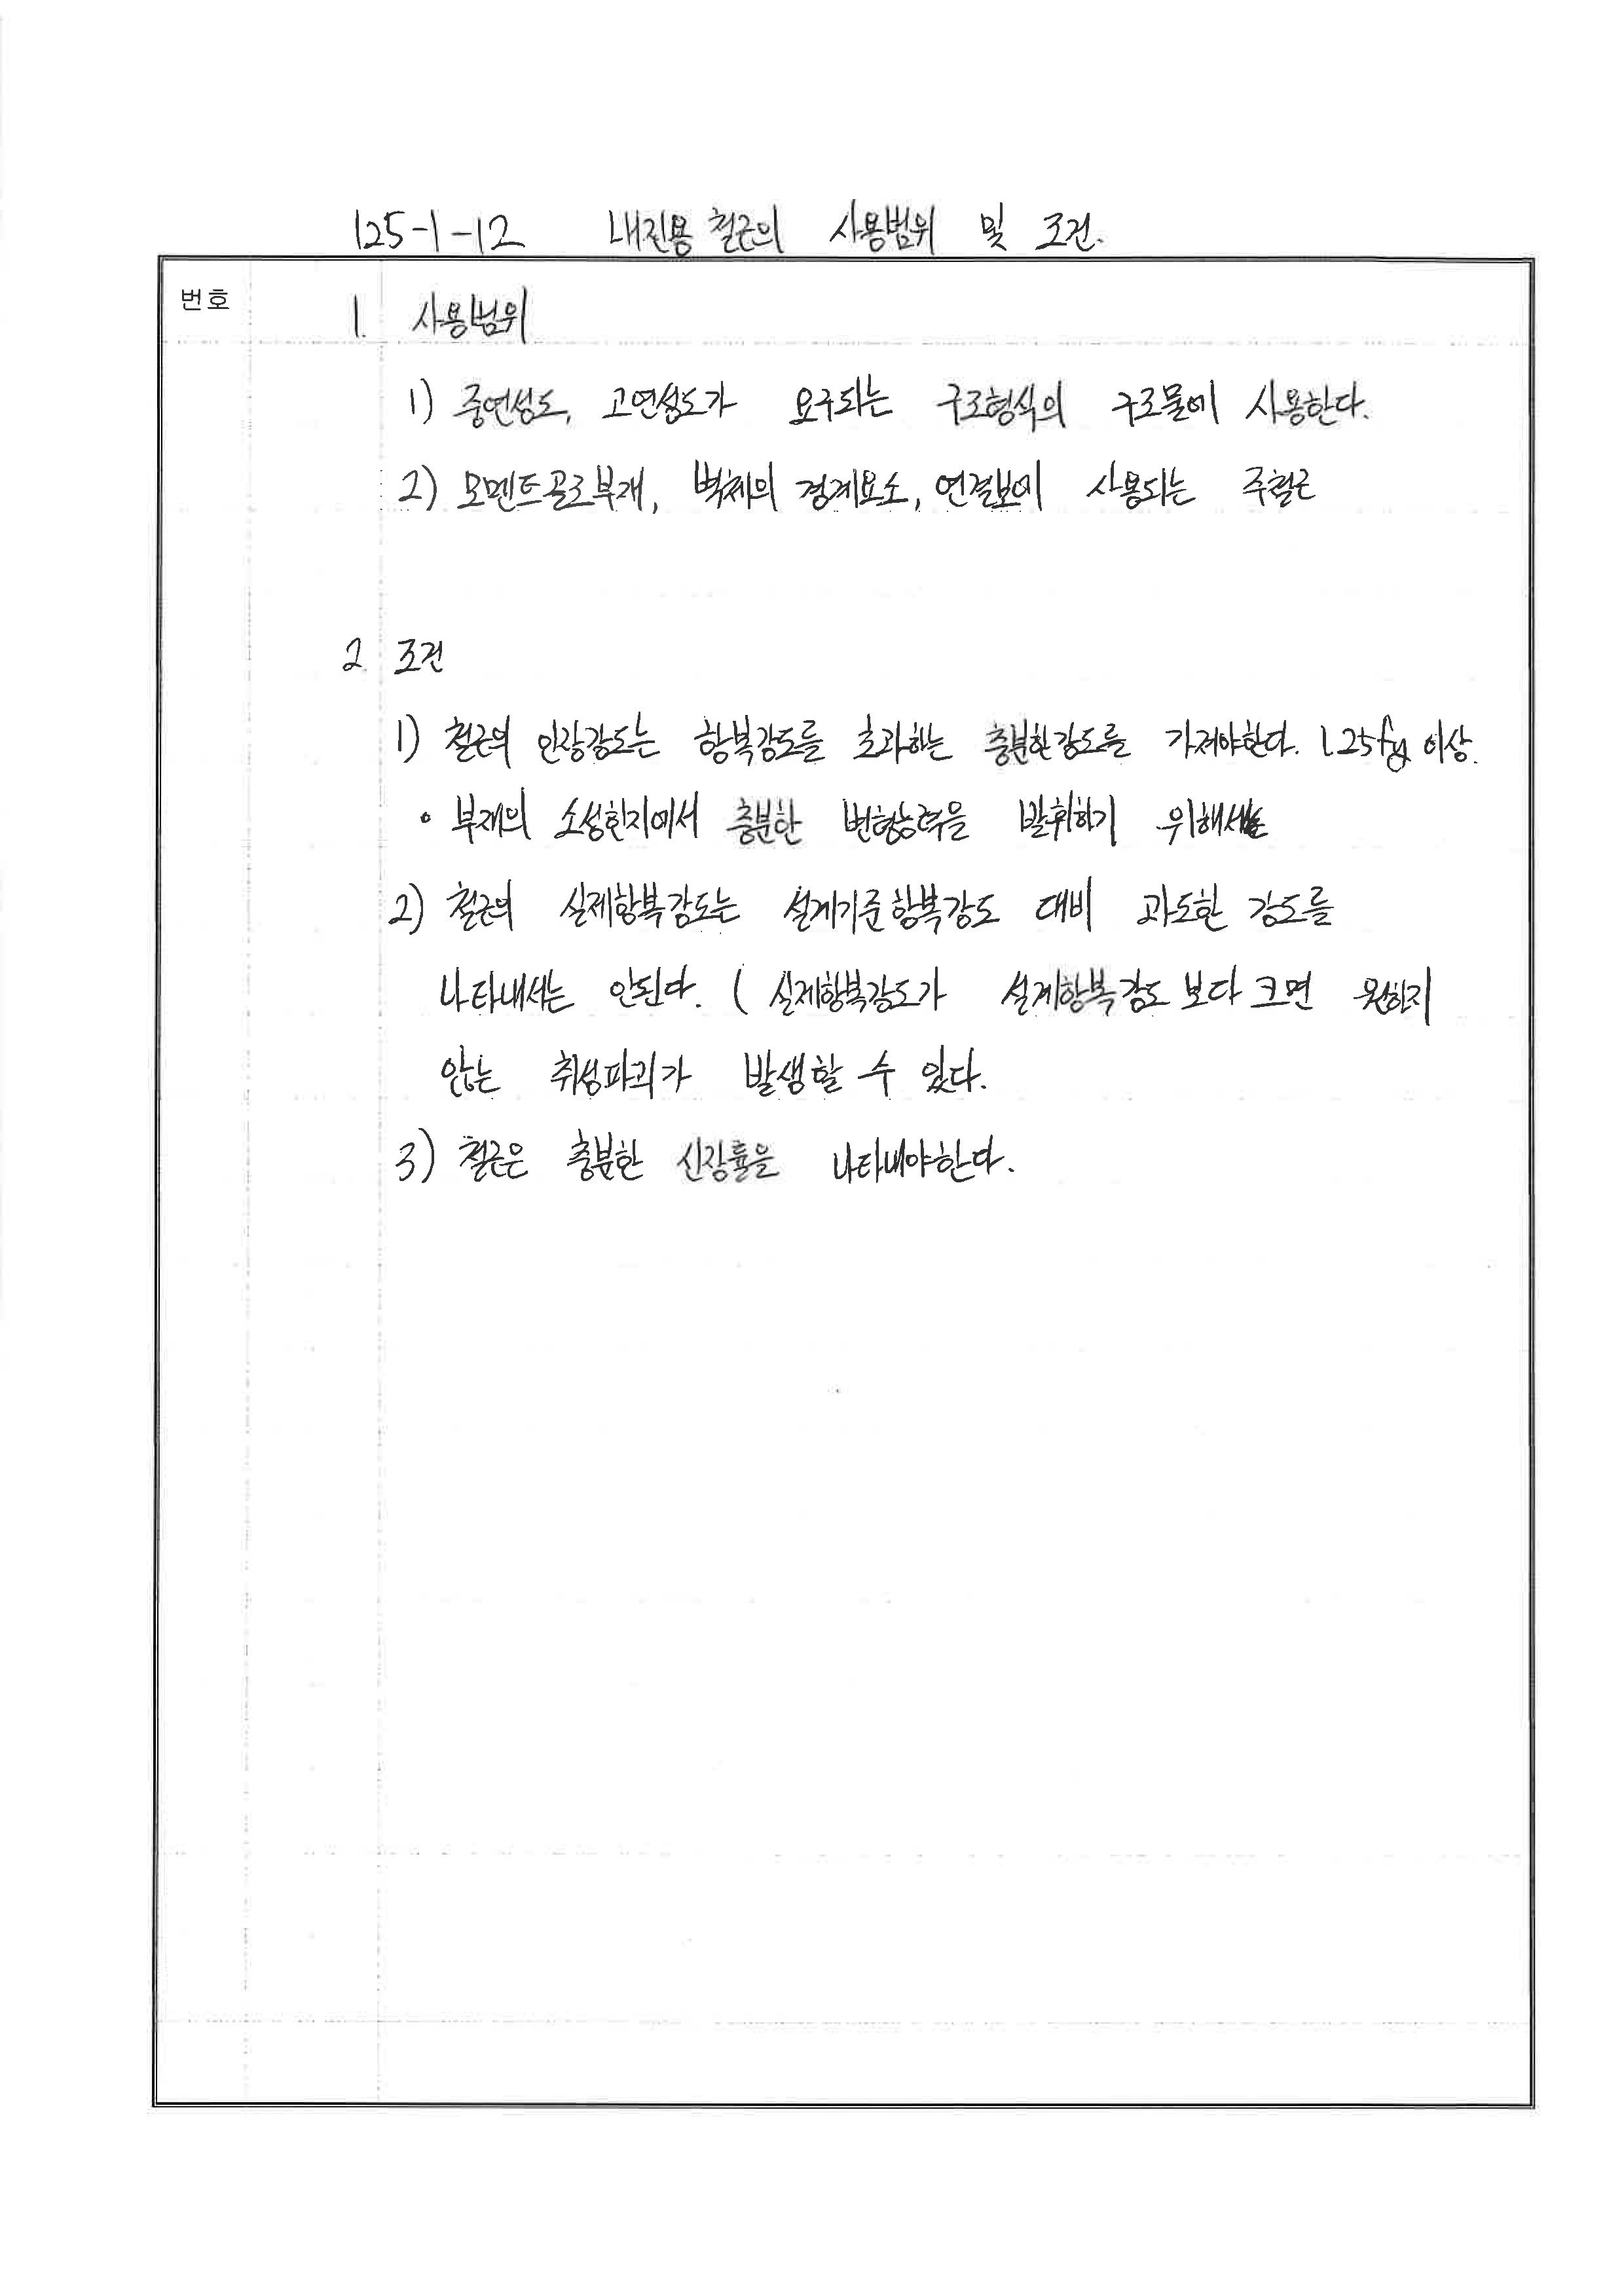 125-1-12 내진용 철근의 사용범위 및 조건.
번호
1. 사용범위
1) 중연성도, 고연성도가 요구되는 구조형식의 구조물에 사용한다.
2) 모멘트골조부재, 벽체의 경계요소, 연결보에 사용되는 주철근
2. 조건
1) 철근의 인장강도는 항복강도를 초과하는 충분한강도를 가져야한다. 1.25fy 이상.
• 부재의 소성힌지에서 충분한 변형능력을 발휘하기 위해서
2) 철근의 실제항복강도는 설계기준항복강도 대비 과도한 강도를
나타내서는 안된다. ( 실제항복강도가 설계항복강도 보다 크면 원하지
않는 취성파괴가 발생할 수 있다.
3) 철근은 충분한 신장률을 나타내야한다.